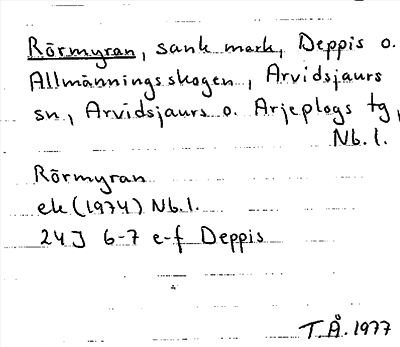 Rörmyran, sank mark, Deppis o.
Allmänningsskogen, Arvidsjaurs
sn, Arvidsjaurs o. Arjeplogs tg,
Nb. l.
Rörmyran
ek (1974) Nb. l.
24J 6-7 e-f Deppis
T.Å. 1977